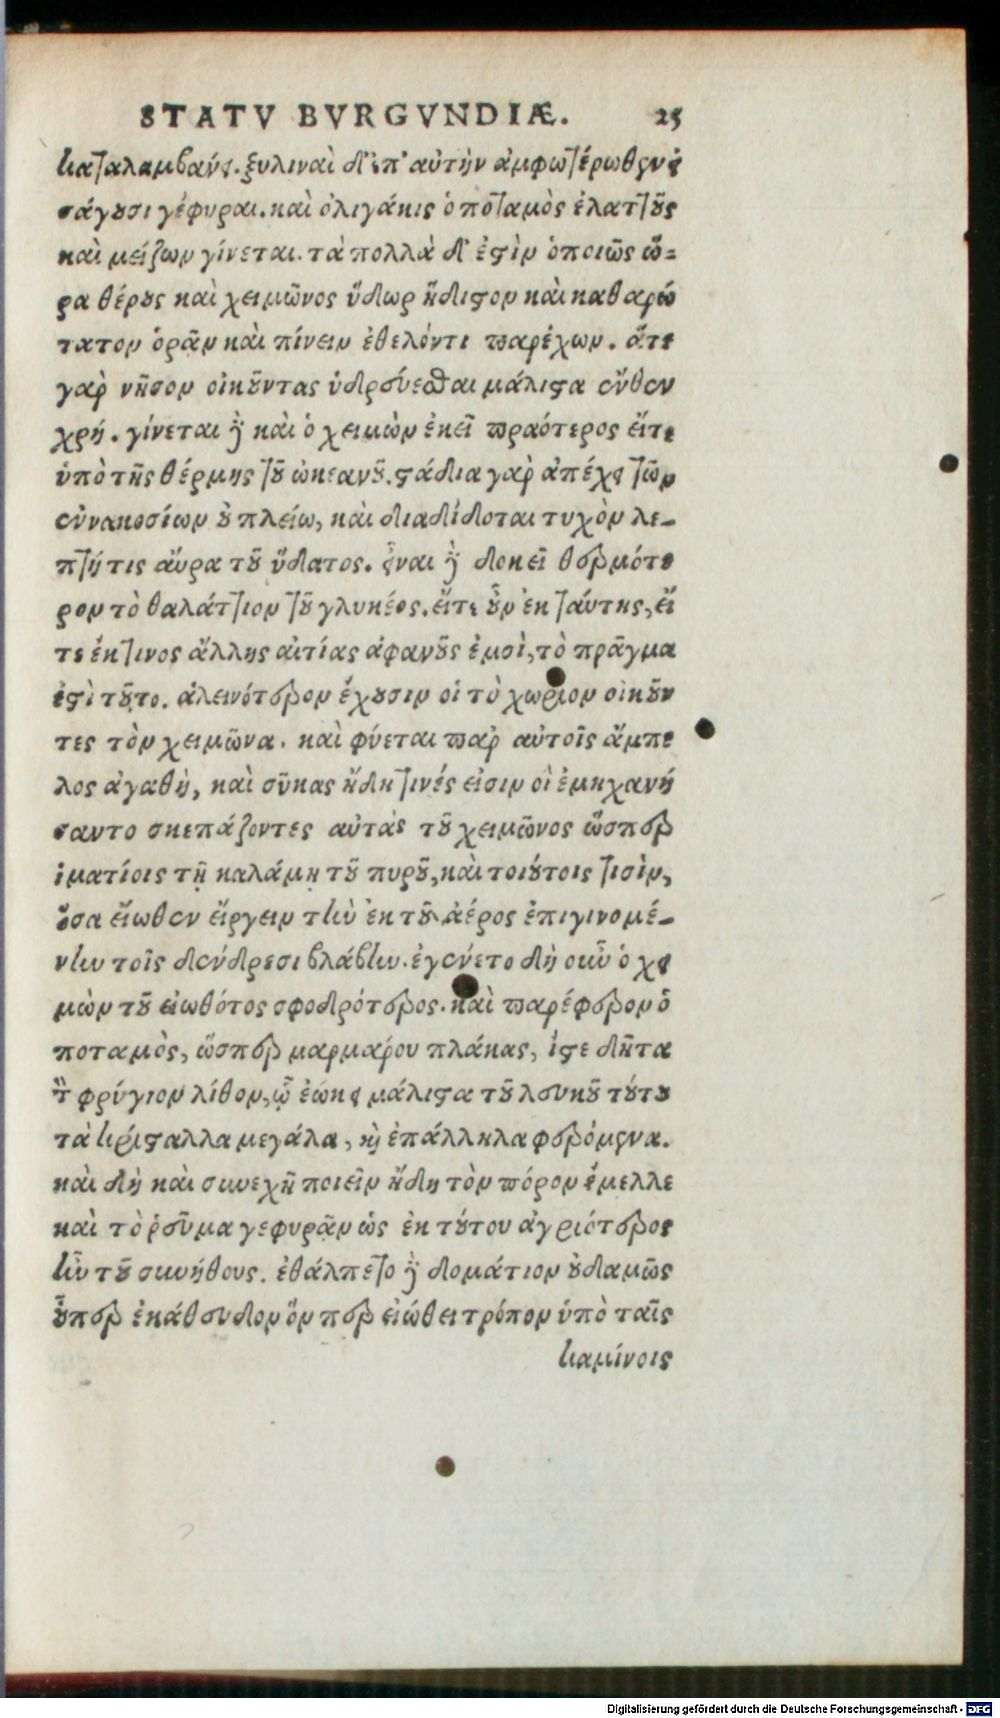 STATV BVRGVNDIÆ. 25
καταλαμβάνει. ξυλιναὶ δ' ἐπ' αὐτὴν ἀμφωτέρωθεν εἰ
σάγουσι γέφυραι. καὶ ὀλιγάκις ὁ ποταμὸς ἐλαττοῦς
καὶ μείζων γίνεται. τὰ πολλὰ δ' ἐστὶν ὁποιῶς ὥ=
ρα θέρους καὶ χειμῶνος ὕδωρ ἥδιστον καὶ καθαρώ
τατον ὁρᾷν καὶ πίνειν ἐθελόντι παρέχων. ἅτε
γὰρ νῆσον οἰκοῦντας ὑδρεύεσθαι μάλιστα ἔνθεν
χρή. γίνεται δὲ καὶ ὁ χειμὼν ἐκεῖ πραότερος εἴτε
ὑπὸ τῆς θέρμης τοῦ ὠκεανοῦ. στάδια γὰρ ἀπέχει τῶν
ἐννακοσίων οὐ πλείω, καὶ διαδίδοται τυχὸν λε-
πτή τις αὔρα τοῦ ὕδατος. εἶναι δὲ δοκεῖ θερμότε
ρον τὸ θαλάττιον τοῦ γλυκέος. εἴτε οὖν ἐκ ταύτης, εἴ
τε ἔκ τινος ἄλλης αἰτίας ἀφανοῦς ἐμοὶ, τὸ πρᾶγμα
ἐστὶ τοῦτο. ἀλεινότερον ἔχουσιν οἱ τὸ χωρίον οἰκοῦν
τες τὸν χειμῶνα. καὶ φύεται παρ' αὐτοῖς ἄμπε
λος ἀγαθὴ, καὶ σῦκας ἤδη τινές εἰσιν οἱ ἐμηχανή
σαντο σκεπάζοντες αὐτὰς τοῦ χειμῶνος ὥσπερ
ἱματίοις τῇ καλάμῃ τοῦ πυροῦ, καὶ τοιούτοις τισὶν,
ὅσα εἴωθεν εἴργειν τὴν ἐκ τοῦ ἀέρος ἐπιγινομέ-
νην τοῖς δένδρεσι βλάβην. ἐγένετο δὴ οὖν ὁ χει
μὼν τοῦ εἰωθότος σφοδρότερος. καὶ παρέφερον ὁ
ποταμὸς, ὥσπερ μαρμάρου πλάκας, ἴστε δῆτα
τὸν φρύγιον λίθον, ᾧ ἐώκει μάλιστα τοῦ λευκοῦ τούτου
τὰ κρύσταλλα μεγάλα, καὶ ἐπάλληλα φερόμενα.
καὶ δὴ καὶ συνεχῆ ποιεῖν ἤδη τὸν πόρον ἔμελλε
καὶ τὸ ῥεῦμα γεφυρᾷν ὡς ἐκ τούτου ἀγριότερος
ἦν τοῦ συνήθους. ἐθάλπετο δὲ δομάτιον οὐδαμῶς
οὗπερ ἐκάθευδον ὅν περ εἰώθει τρόπον ὑπὸ ταῖς
καμίνοις
Digitalisierung gefördert durch die Deutsche Forschungsgemeinschaft - DFG